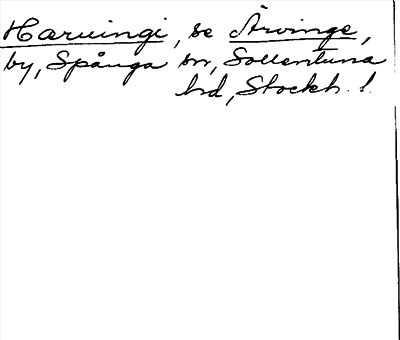 Haruingi, se Ärvinge,
by, Spånga sn, Sollentuna
hd, Stockh. l.